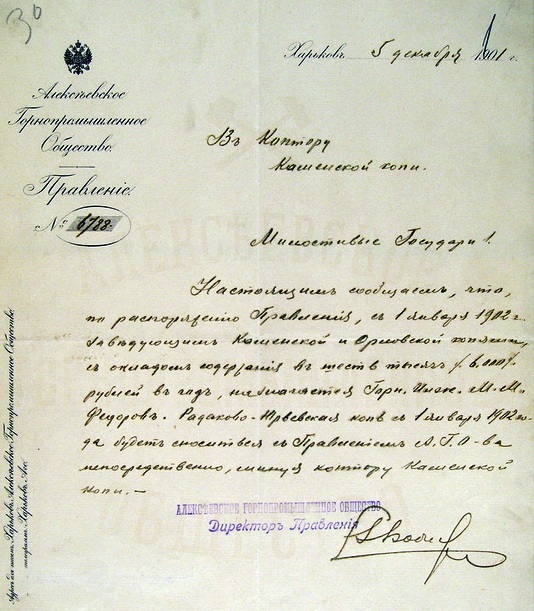 30
Харьковъ 5 декабря 1901 г.
Алексѣевское
Горнопромышленное
Общество
Правленіе.
№ 6788.
Въ Контору
Каменской копи.
Милостивые Государи!
Настоящимъ сообщаемъ, что,
по распоряженію Правленія, съ 1 января 1902 г.
Завѣдующимъ Каменской и Орловской копями,
съ окладомъ содержанія въ шесть тысячъ /6.000/
рублей въ годъ, назначается Горн. Инж. М. М.
Федоровъ. Радаково-Юрьевская копь съ 1 января 1902 го-
да будетъ сноситься съ Правленіемъ А. Г. О-ва
непосредственно, минуя контору Каменской
копи. —
АЛЕКСѢЕВСКОЕ ГОРНОПРОМЫШЛЕННОЕ ОБЩЕСТВО
Директоръ Правленія
Адресъ для писемъ: Харьковъ, Алексѣевское Горнопромышленное Общество.
телеграммъ: Харьковъ, Аго.